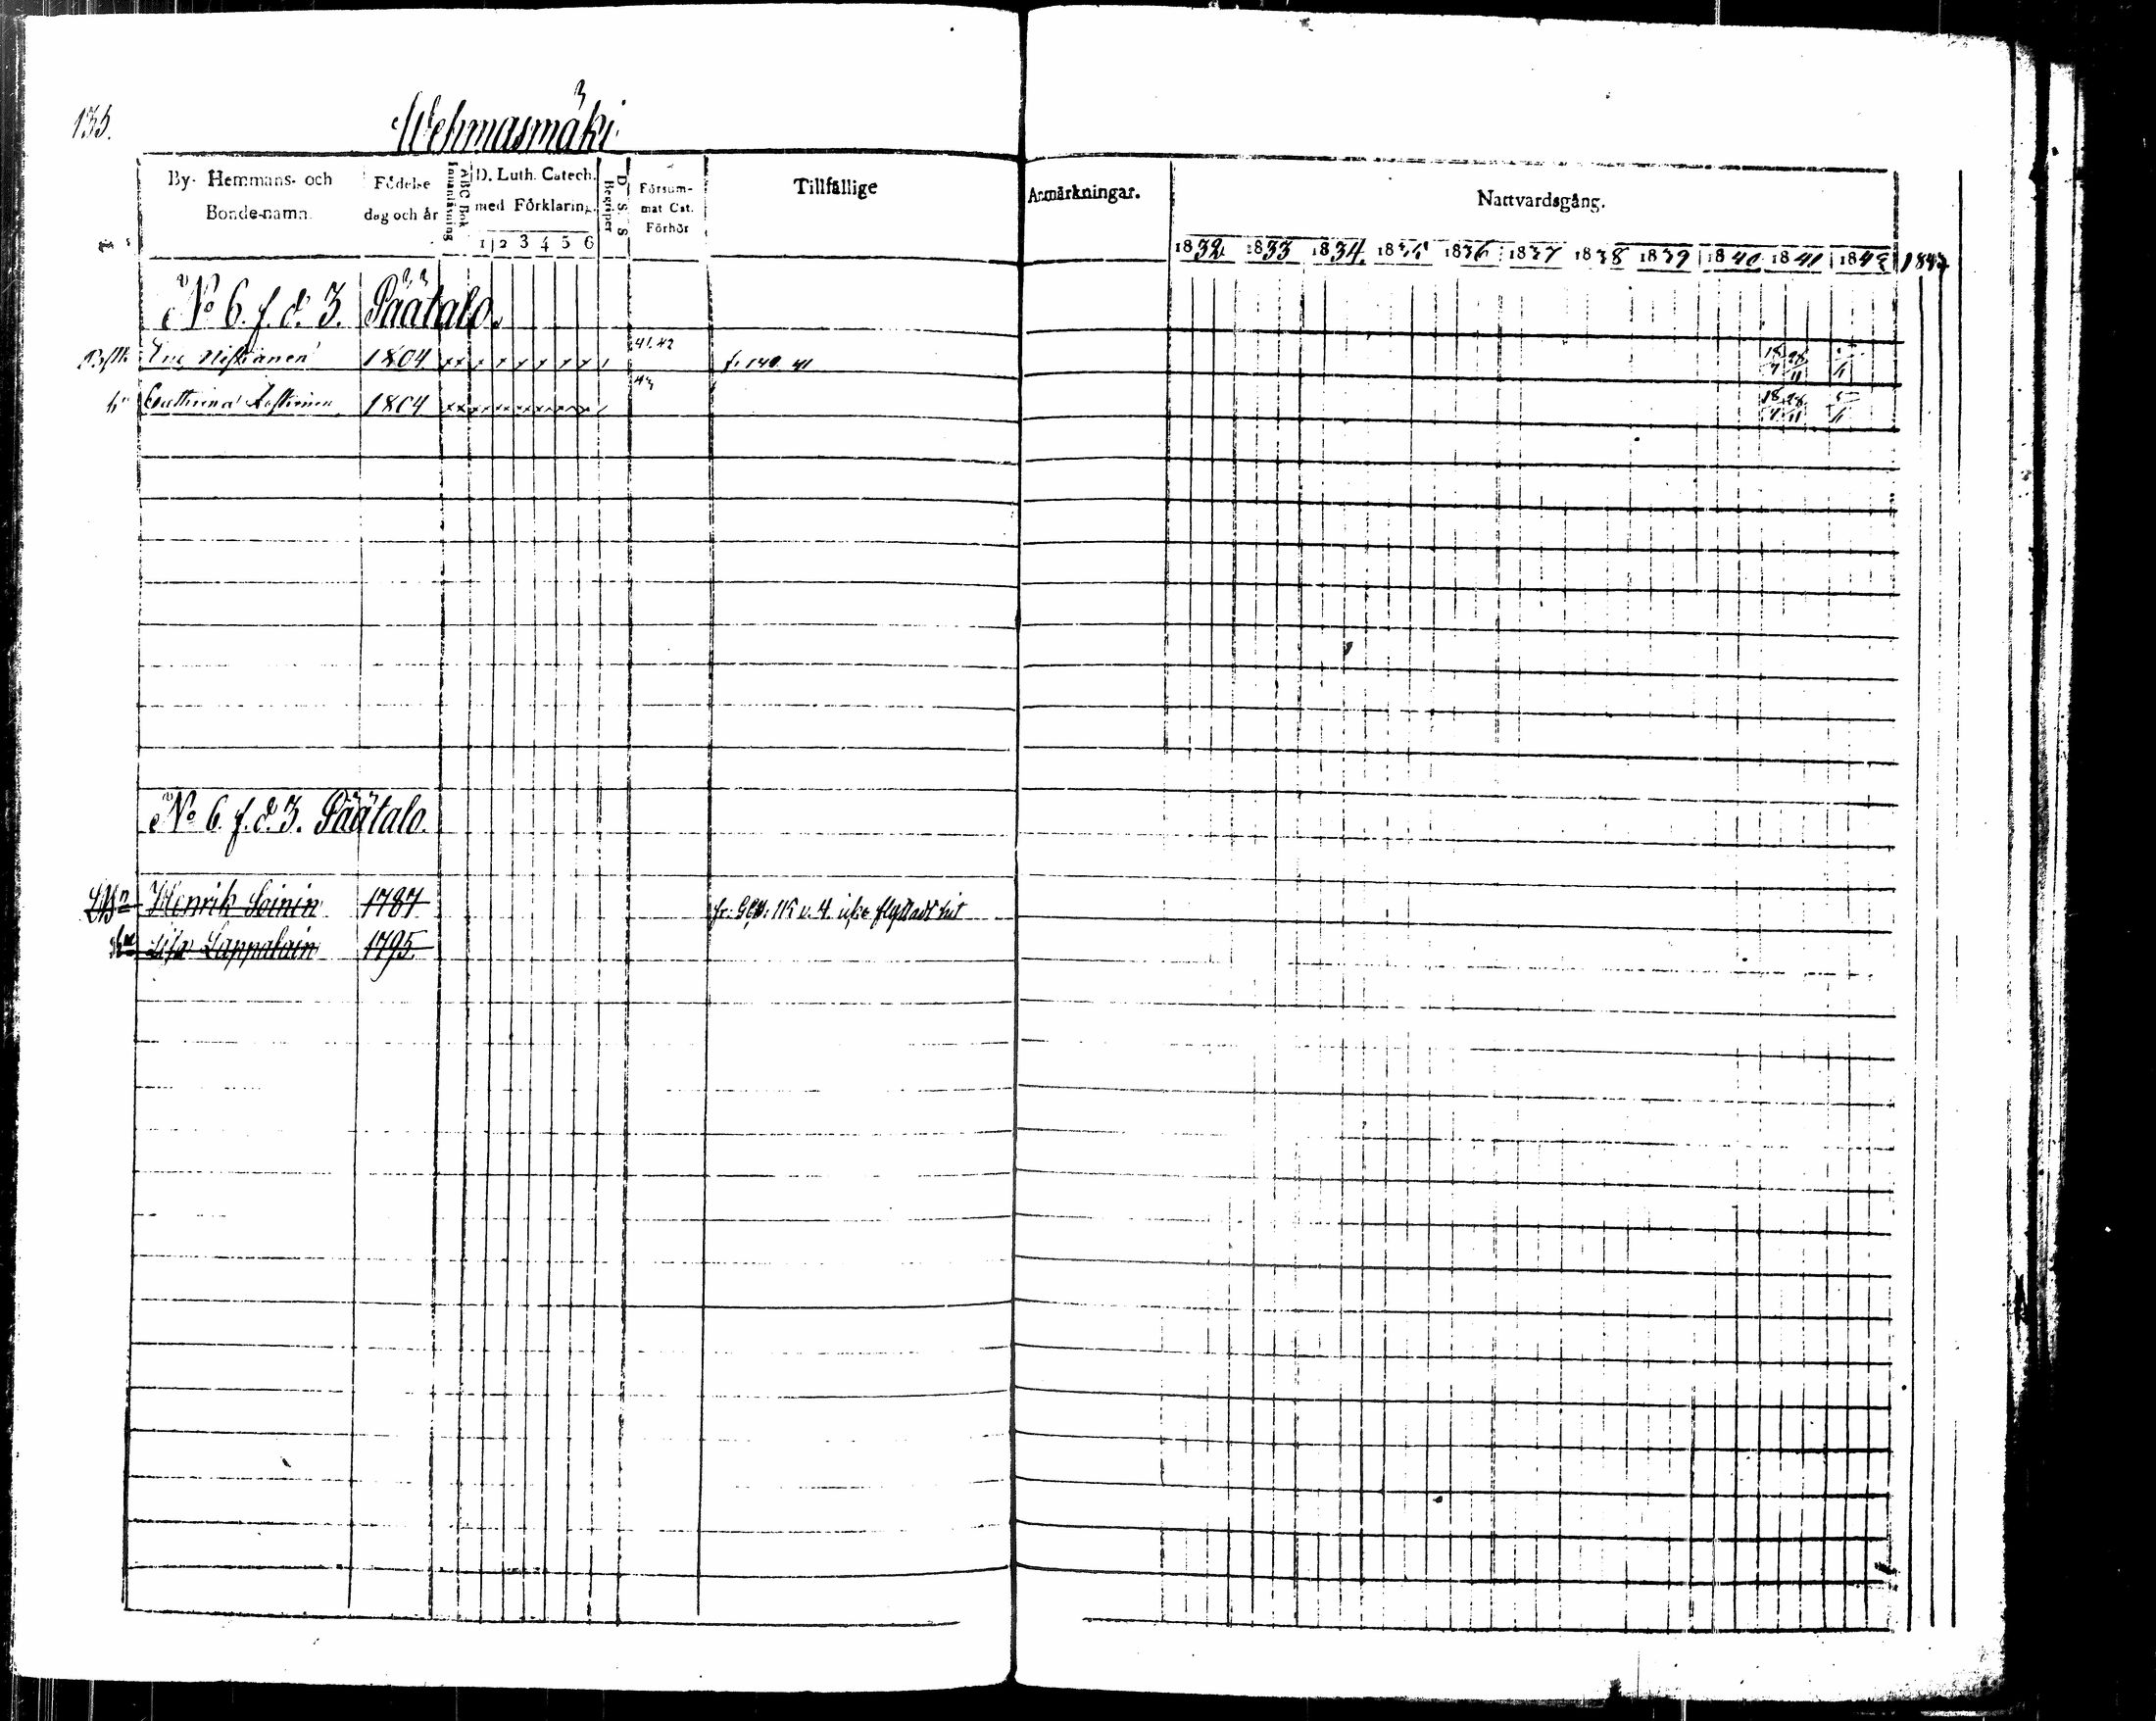 135.
Wehmasmäki
By- Hemmans- och Bonde-namn.
Födelse dag och år
Innanläsning
ABC Bok
D. Luth. Catech. med Förklaring.
1 2 3 4 5 6
D. S. S.
Begriper
Försum-
mat Cat.
Förhör
Tillfällige
Anmärkningar.
Nattvardsgång.
1832 1833 1834 1835 1836 1837 1838 1839 1840 1841 1842 1843
No 6. f. d. 3. Päätalo.
1804 41. 42 fr. 140. 41 18/7 28/11
Cathrina 1804 43 18/7 28/11
No 6. f. d. 3. Päätalo.
Henrik Soinin 1787 fr: 115 v. 4. icke flyttadt hit
Lisa Lappalain 1795